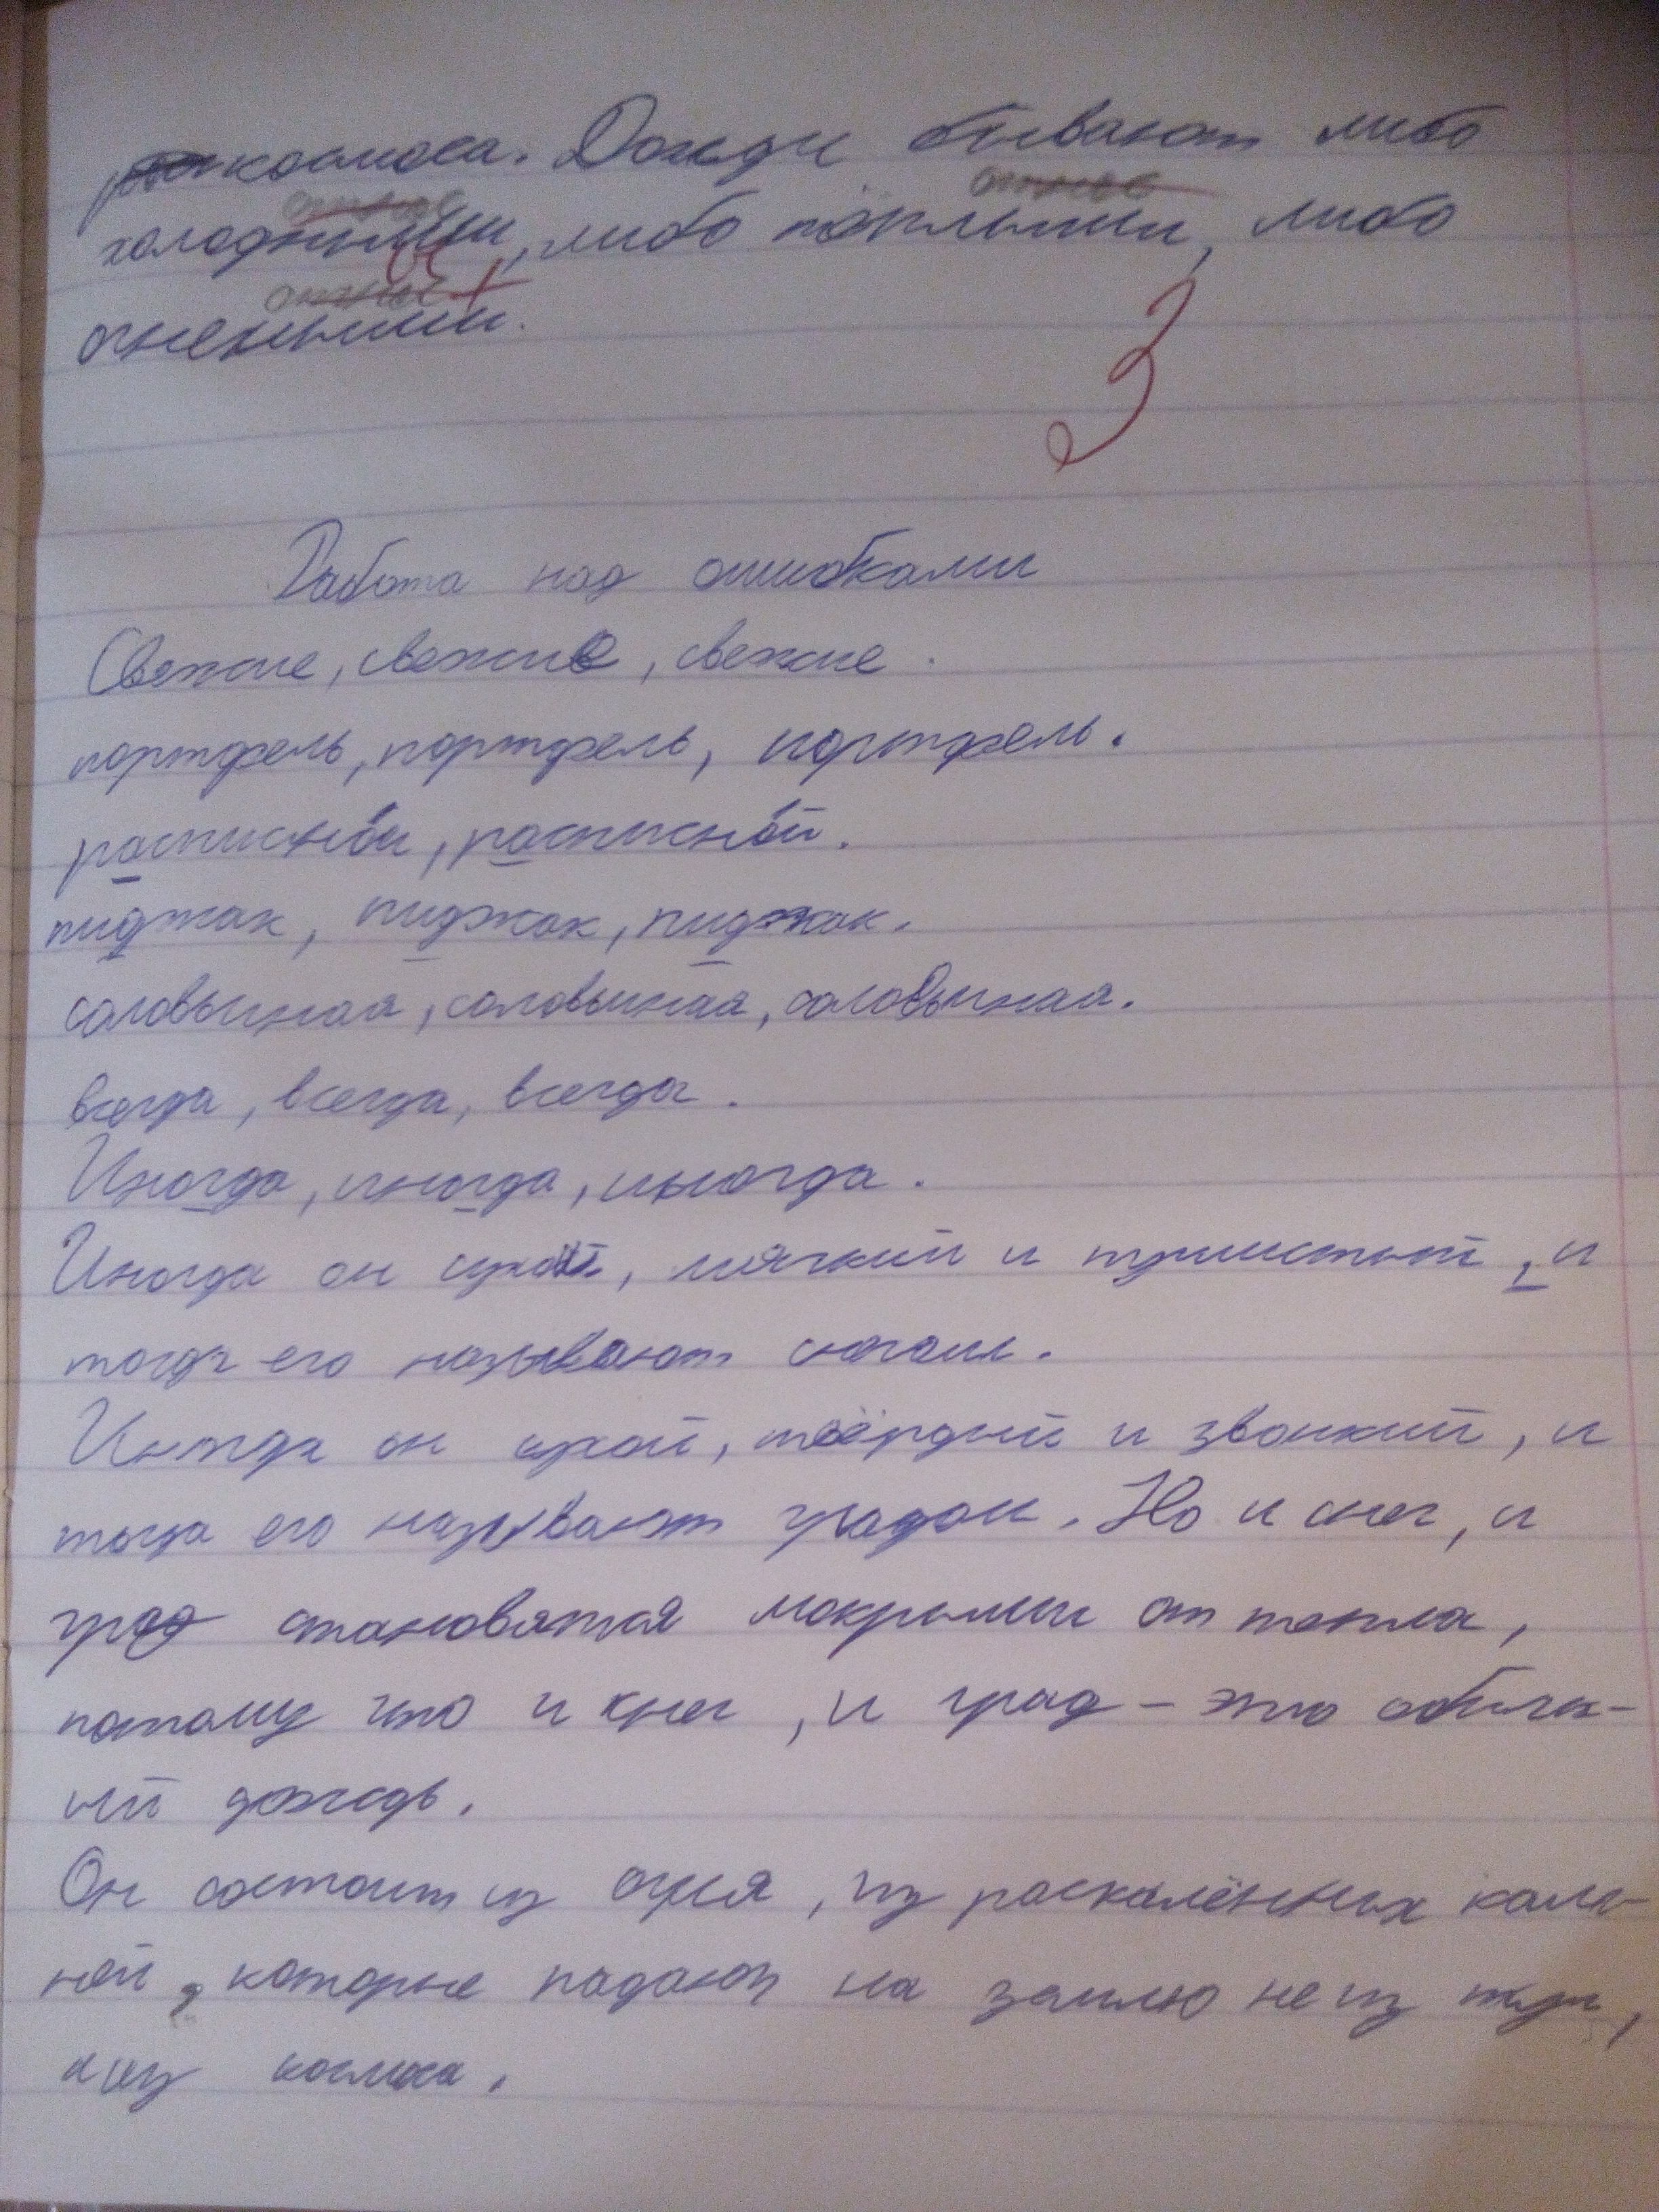 космоса. Дожди бывают либо
холодными, либо тёплыми, либо
огнеными.
3
Работа над ошибками
Свежие, свежие, свежие.
портфель, портфель, портфель.
расписной, расписной.
пиджак, пиджак, пиджак.
соловьиная, соловьиная, соловьиная.
всегда, всегда, всегда.
Иногда, иногда, иногда.
Иногда он сухой, мягкий и пушистый, и
тогда его называют снегом.
Иногда он сухой, твёрдый и звонкий, и
тогда его называют градом. Но и снег, и
град становятся мокрыми от тепла,
потому что и снег, и град - это обычн-
ый дождь.
Он состоит из огня, из раскалённых кам-
ней, которые падают на землю не из туч,
а из космоса.